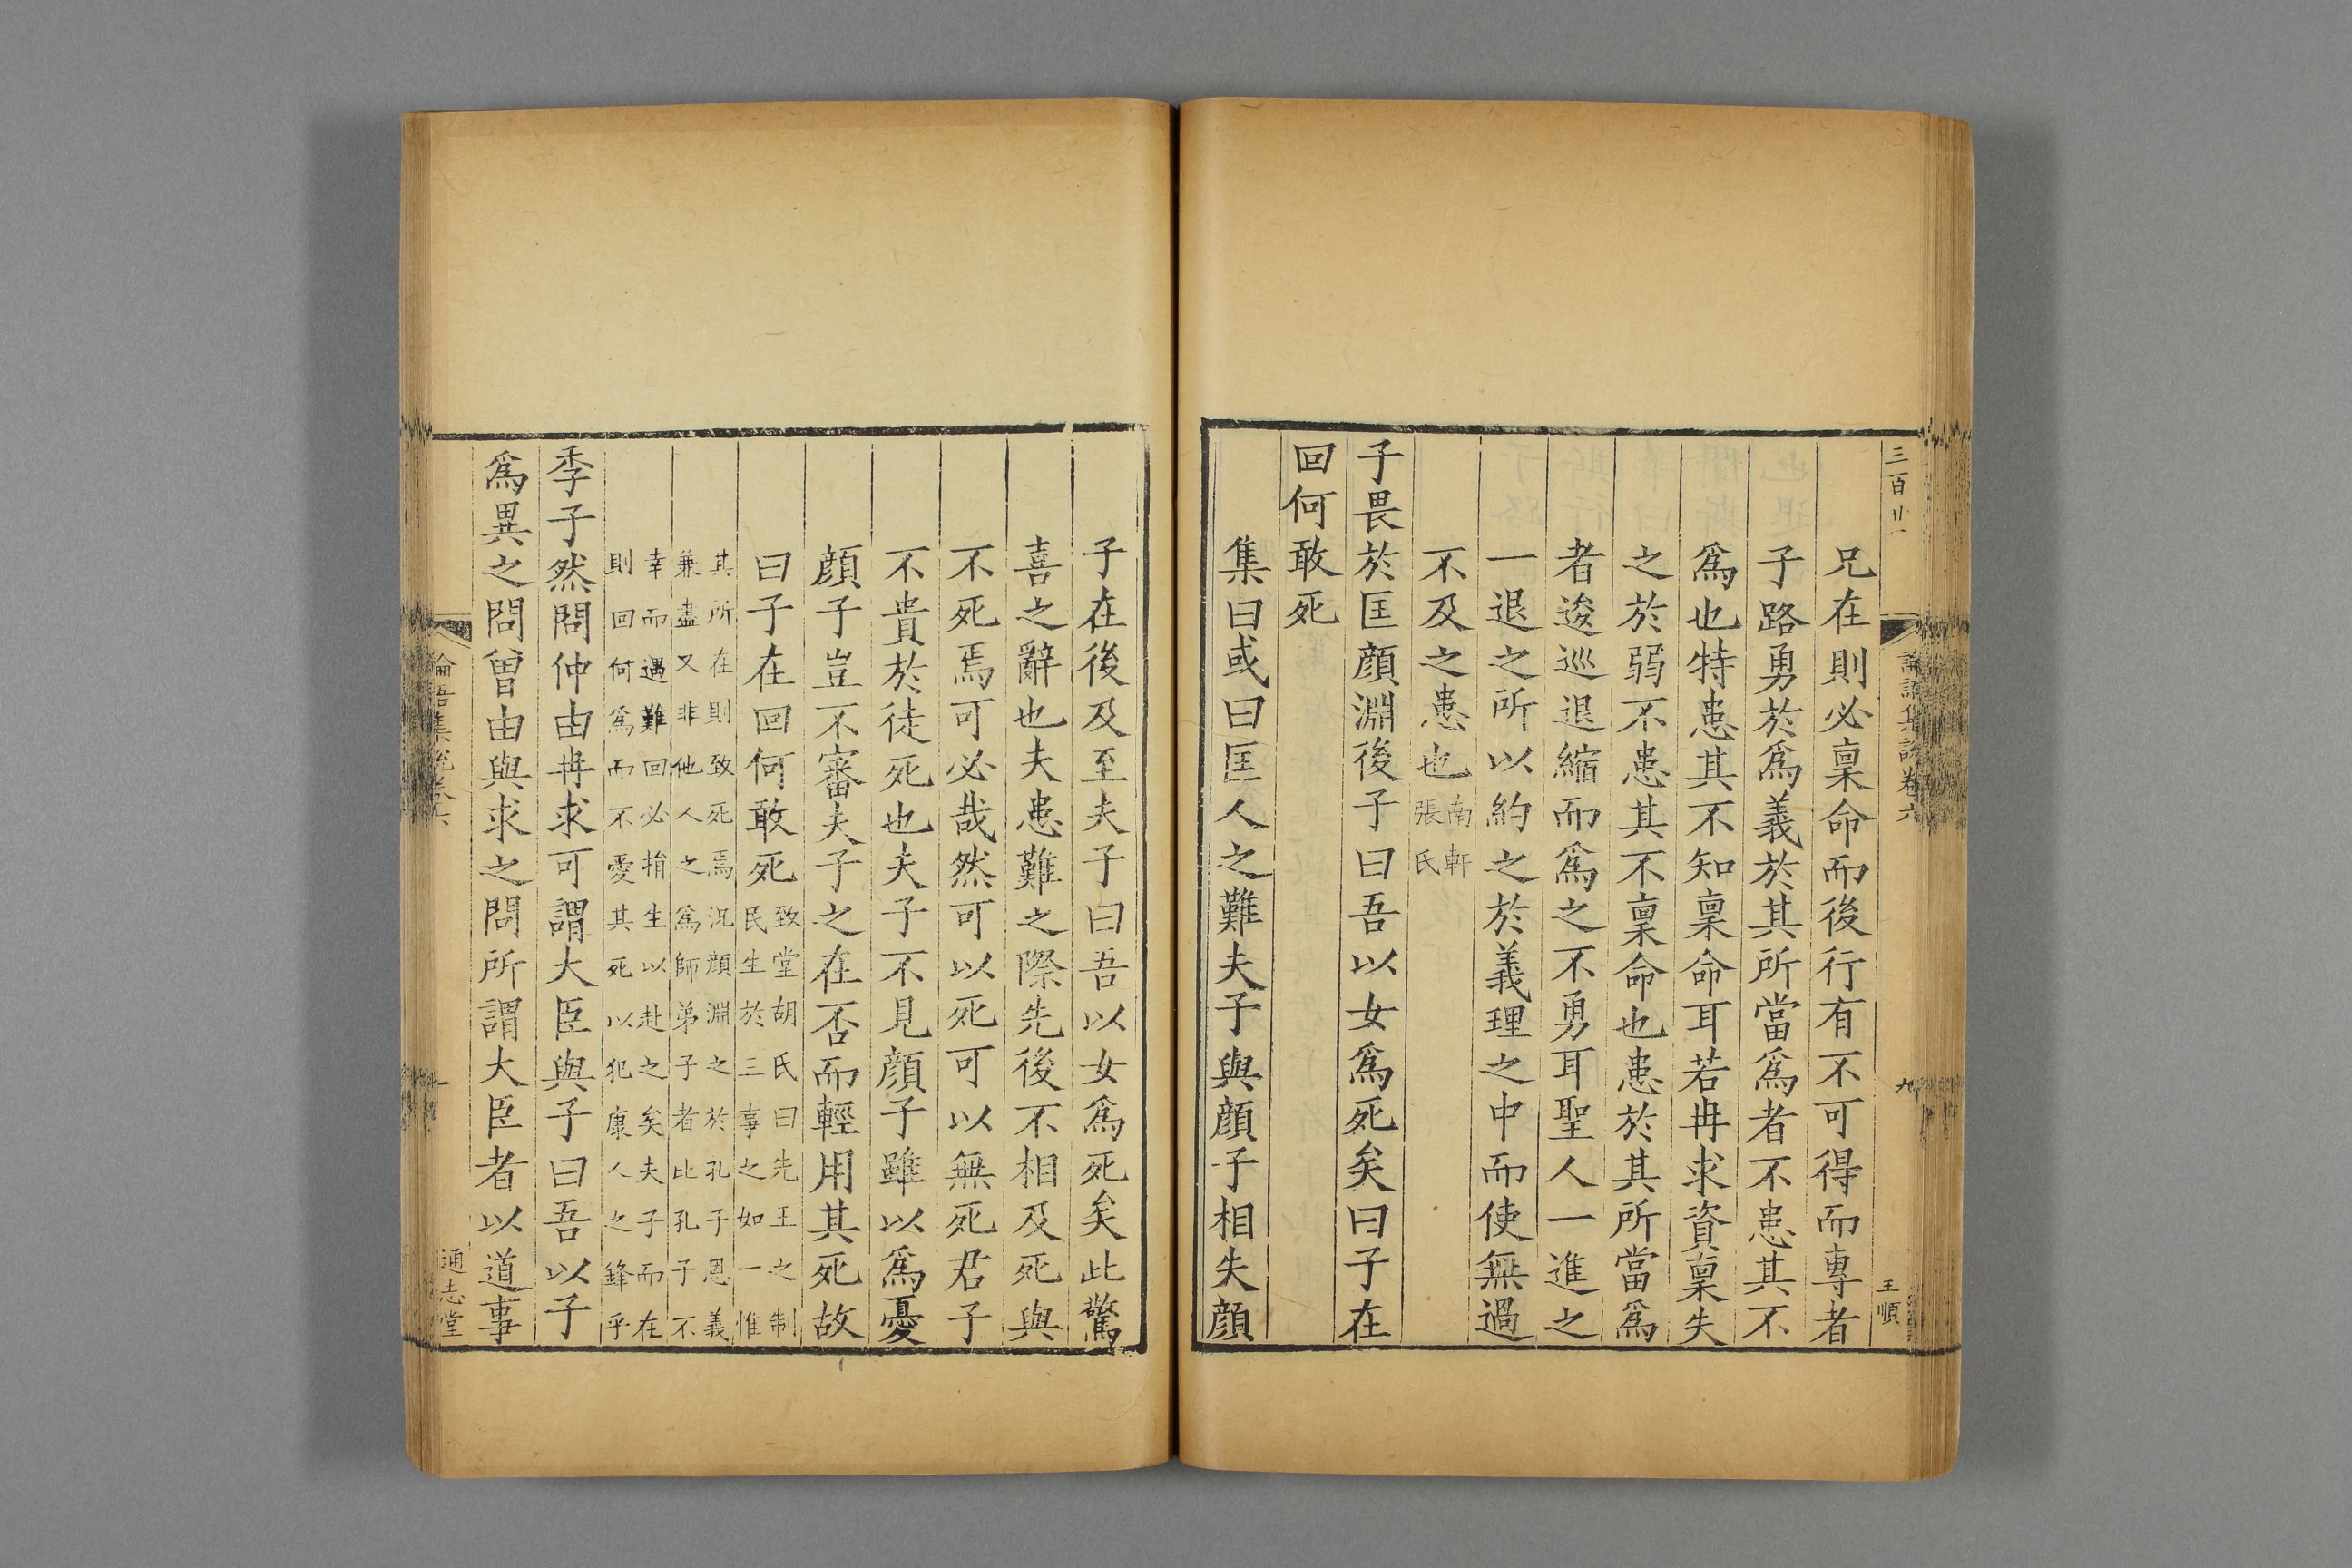 三百廿一
論語集說卷六
九
王順
兄在則必稟命而後行有不可得而專者
子路勇於爲義於其所當爲者不患其不
爲也特患其不知稟命耳若冉求資稟失
之於弱不患其不稟命也患於其所當爲
者逡巡退縮而爲之不勇耳聖人一進之
一退之所以約之於義理之中而使無過
不及之患也南軒張氏
子畏於匡顔淵後子曰吾以女爲死矣曰子在
回何敢死
集曰或曰匡人之難夫子與顔子相失顔
子在後及至夫子曰吾以女爲死矣此驚
喜之辭也夫患難之際先後不相及死與
不死焉可必哉然可以死可以無死君子
不貴於徒死也夫子不見顔子雖以爲憂
顔子豈不審夫子之在否而輕用其死故
曰子在回何敢死致堂胡氏曰先王之制民生於三事之如一惟
其所在則致死焉況顔淵之於孔子恩義
兼盡又非他人之爲師弟子者比孔子不
幸而遇難回必捐生以赴之矣夫子而在
則回何爲而不愛其死以犯康人之鋒乎
季子然問仲由冉求可謂大臣與子曰吾以子
爲異之問曾由與求之問所謂大臣者以道事
論語集說卷六
通志堂